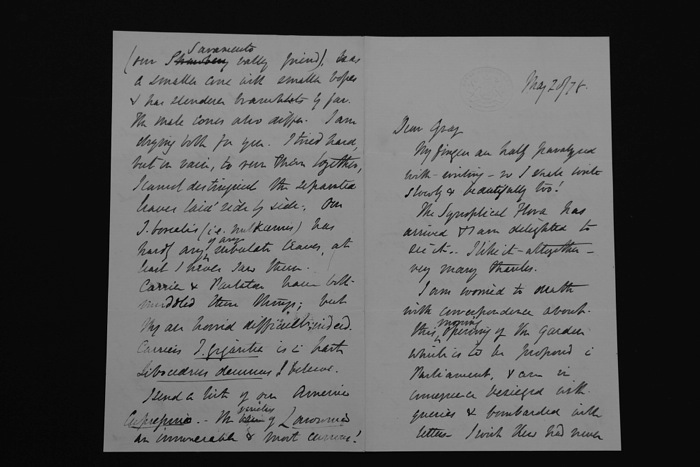 Sacramento
(our Strawberry valley friend), has
a smaller cone with smaller
& has slenderer branchlets by far.
The male cones also differ. I am
drying both for you. I tried hard,
but in vain, to run them together,
I cannot distinguish the separated
leaves laid side by side. Our
T. borealis (i.e. nutkaensis) has
hardly any of any leaves, at
least I never saw them.
Carrière & Parlatore have both
muddled these things; but
they are horrid difficult indeed.
Carrière's T. gigantea is in part
Libocedrus decurrens I believe.
I send a list of our America
Cupressus. - The of Lawsoniana
are innumerable & most curious!
May 20/78.
Dear Gray
My fingers are half paralyzed
with writing - so I shall write
slowly & beautifully too!
The Synoptical Flora has
arrived & I am delighted to
see it.. I like it altogether -
very many thanks.
I am worried to death
with correspondence about
this morning opening of the Gardens
which is to be proposed in
Parliament, & am in
consequence besieged with
queries & bombarded with
letters - I wish they had never